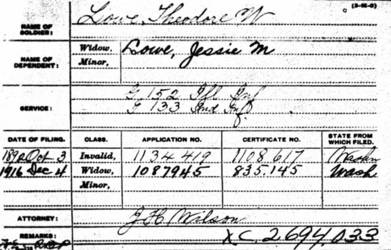 (3-16-0)
NAME OF SOLDIER: Lowe, Theodore W
NAME OF DEPENDENT: Widow, Lowe, Jessie M
Minor,
SERVICE: G 152 Ill Inf
G 133 Ind Inf.
DATE OF FILING. CLASS. APPLICATION NO. CERTIFICATE NO. STATE FROM WHICH FILED.
1892 Oct 3 Invalid, 1134419 1108.617 Washn
1916 Dec 4 Widow, 1087945 835.145 Wash
Minor,
ATTORNEY: J H Wilson
REMARKS: XC 2694033